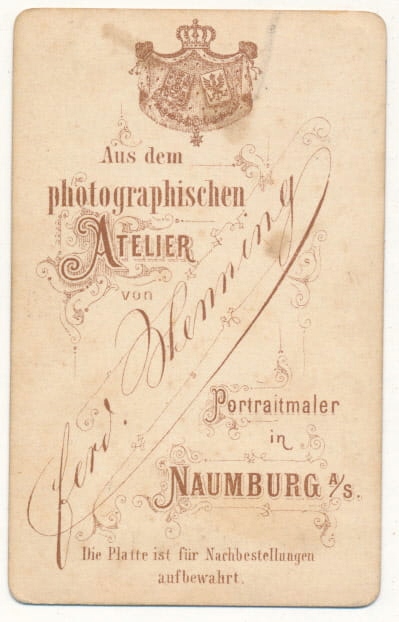 Aus dem
photographischen
ATELIER
von
Ferd. Henning
Portraitmaler
in
NAUMBURG A/S.
Die Platte ist für Nachbestellungen
aufbewahrt.